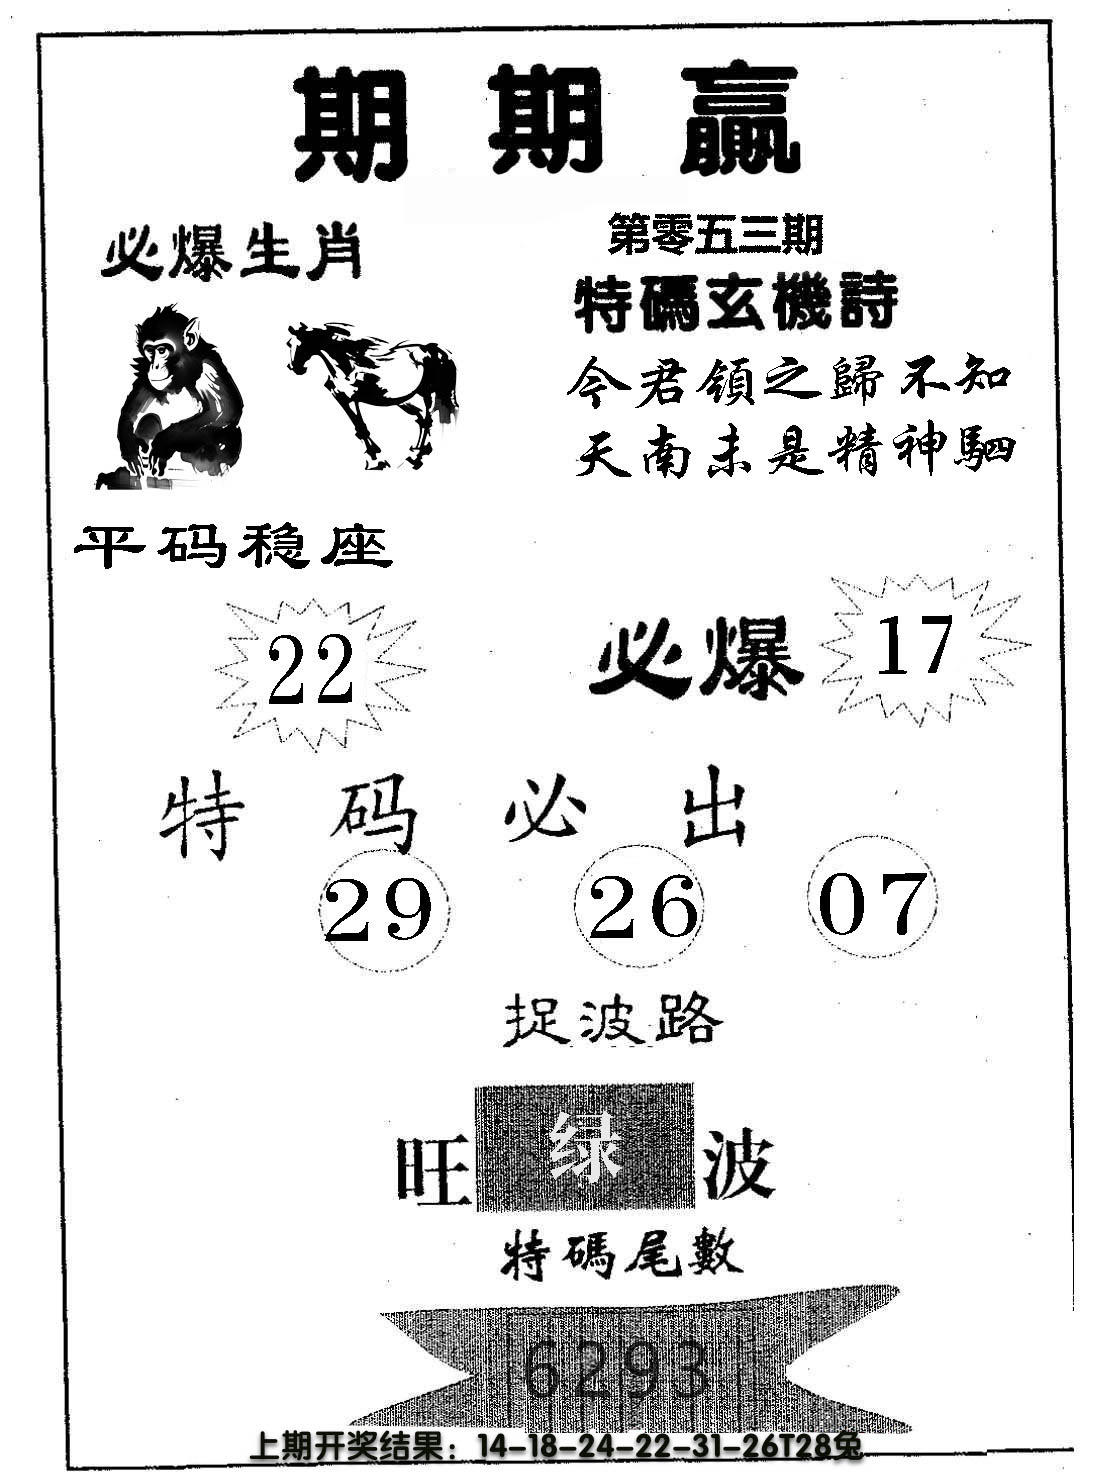 期期赢
必爆生肖
第零五三期
特碼玄機詩
今君領之歸不知
天南未是精神駟
平码稳座
22
必爆 17
特码必出
29 26 07
捉波路
旺 绿 波
特碼尾數
6293
上期开奖结果：14-18-24-22-31-26T28兔